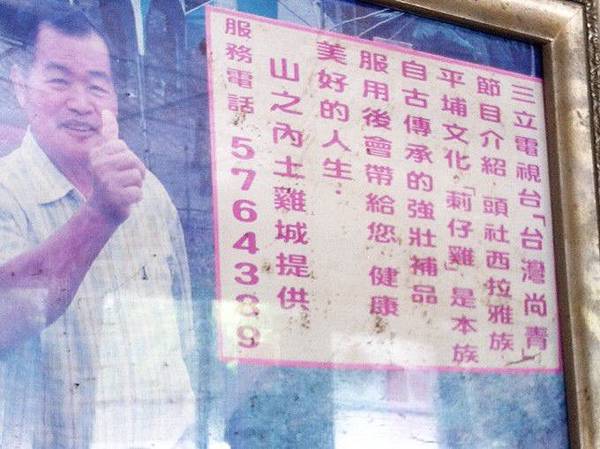 三立電視台「台灣尚青」
節目介紹 頭社西拉雅族
平埔文化「莿仔雞」是本族
自古傳承的強壯補品
服用後會帶給您 健康
美好的人生.
山之內土雞城提供
服務電話 5764339